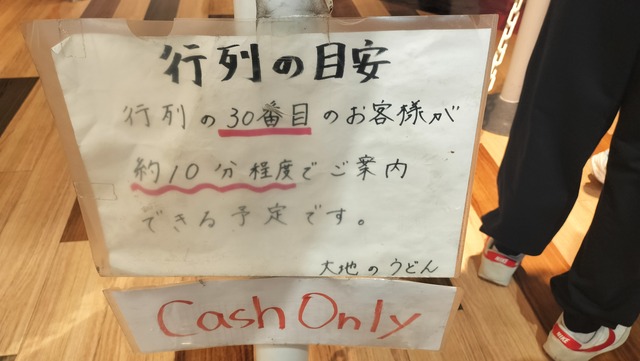 行列の目安
行列の30番目のお客様が
約10分程度でご案内
できる予定です。
大地のうどん
Cash Only